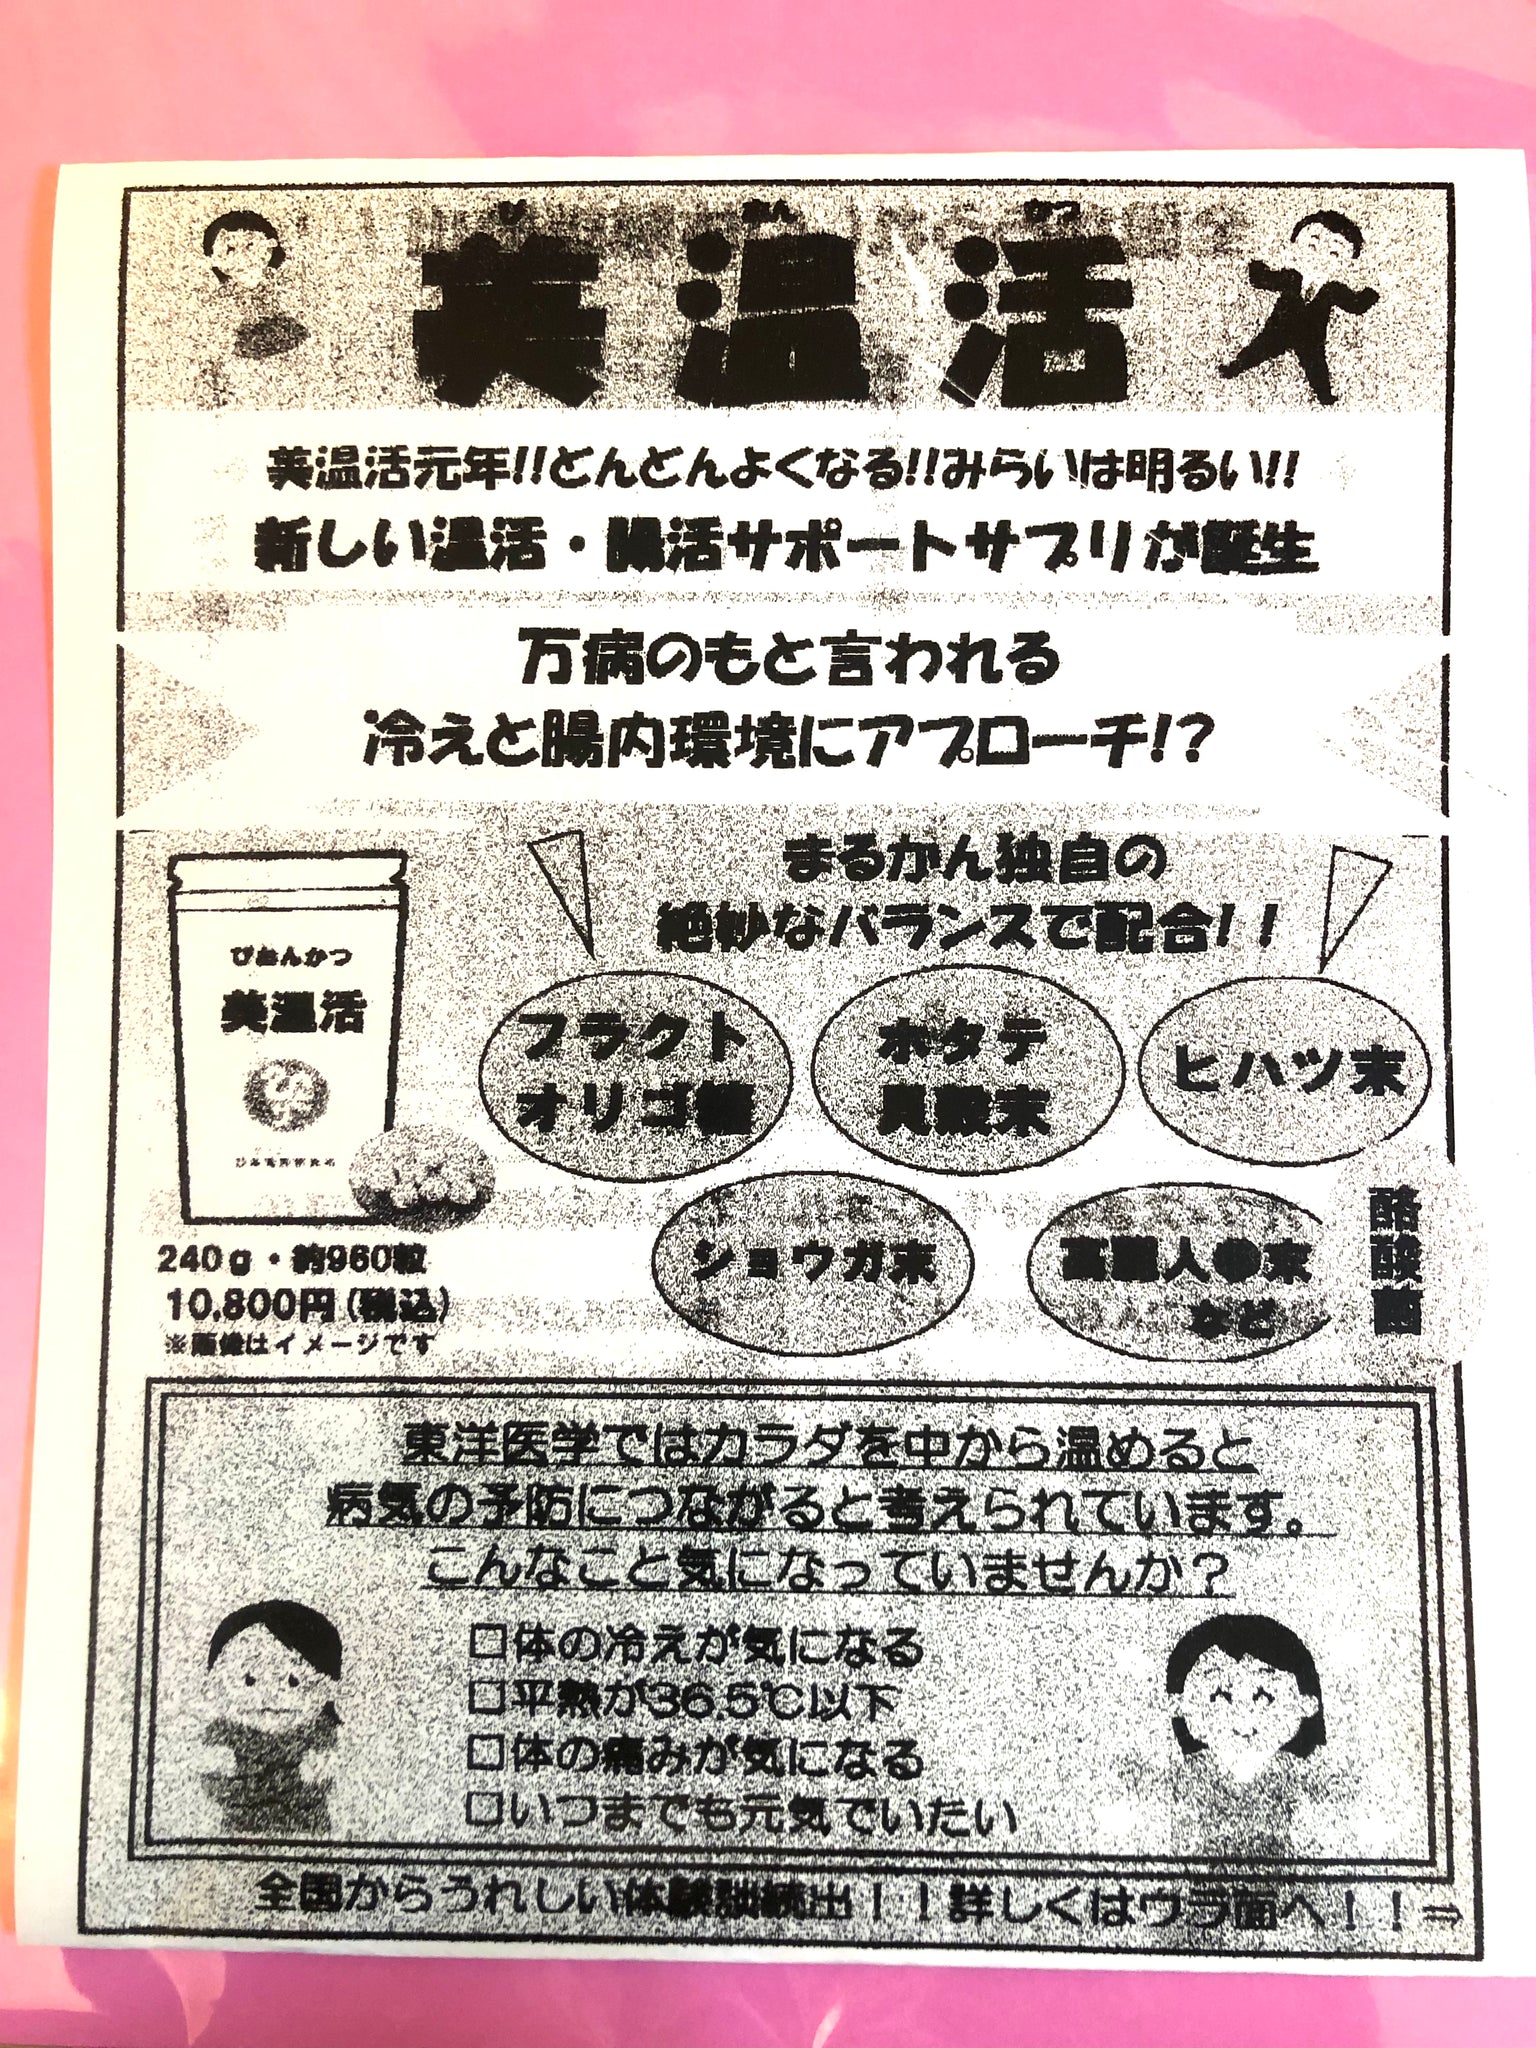 び おん かつ
美温活
美温活元年!!どんどんよくなる!!みらいは明るい!!
新しい温活・腸活サポートサプリが誕生
万病のもと言われる
冷えと腸内環境にアプローチ!?
まるかん独自の
絶妙なバランスで配合！！
びおんかつ
美温活
240g・約960粒
10,800円(税込)
※画像はイメージです
フラクト
オリゴ糖
ホタテ
貝殻末
ヒハツ末
ショウガ末
高麗人●末
など
酪酸菌
東洋医学ではカラダを中から温めると
病気の予防につながると考えられています。
こんなこと気になっていませんか？
□体の冷えが気になる
□平熱が36.5℃以下
□体の痛みが気になる
□いつまでも元気でいたい
全国からうれしい体験談続出！！詳しくはウラ面へ！！⇒